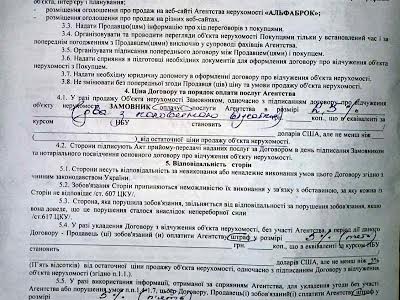 об'єкта, інтер'єру і планування;
- розміщення оголошення про продаж на веб-сайті Агентства нерухомості «АЛЬФАБРОК»;
- розміщення оголошення про продаж на різних веб-сайтах.
3.3. Надати Продавцю(цям) інформацію про хід переговорів з покупцями.
3.4. Організувати та проводити перегляди об'єкта нерухомості Покупцями тільки у встановлений час і за
попереднім погодженням з Продавцем(цями) виключно у супроводі фахівця Агентства.
3.5. Організувати підписання попереднього договору між Продавцем(цями) і покупцем.
3.6. Надати сприяння в підготовці необхідних документів для оформлення договору про відчуження об'єкта
нерухомості з Покупцем.
3.7. Надати необхідну юридичну допомогу в оформленні договору про відчуження об'єкта нерухомості.
3.8. Не змінювати без попередньої згоди Продавця (ців) ціну та умови продажу об'єкта нерухомості.
4. Ціна Договору та порядок оплати послуг Агентства
4.1. У разі продажу Об'єкту нерухомості Замовником, одночасно з підписанням договору про відчуження
об'єкту нерухомості ЗАМОВНИК оплачує послуги Агентства в розмірі
грн. коп., що в еквіваленті за
курсом НБУ становить
доларів США, але не менш ніж
) від остаточної ціни продажу об'єкта нерухомості.
4.2. Сторони підписують Акт прийому-передачі наданих послуг за Договором в день підписання Замовником
та нотаріального посвідчення основного договору про відчуження об'єкту нерухомості.
5. Відповідальність сторін
5.1. Сторони несуть відповідальність за невиконання або неналежне виконання умов цього Договору згідно з
чинним законодавством України.
5.2. Зобов'язання Сторін припиняються неможливістю їх виконання у зв'язку з обставиною, за яку кожна із
Сторін не відповідає /ст. 607 ЦКУ/.
5.3. Сторона, яка порушила зобов'язання, звільняється від відповідальності за порушення зобов'язання, якщо
вона доведе, що це порушення сталось внаслідок непереборної сили
/ст.617 ЦКУ/.
5.4. У разі укладення Договору про відчуження, без участі Агентства в період дії даного
Договору - Продавець (ці) зобов'язаний (и) оплатити Агентству штраф у розмірі 5%
грн. коп., що в еквіваленті за курсом НБУ
становить
доларів США, але не менш ніж
(П'ять відсотків) від остаточної ціни продажу об'єкта нерухомості, одночасно з підписанням Договору про
відчуження об'єкта нерухомості (згідно п.1.1.).
5.5. У разі використання інформації, отриманої за сприянням Агентства, для укладення угоди без участі
Агентства або порушення умов п.п.
Договору, Продавець(і) зобов'язаний(і) сплатити Агентству штраф у
розмірі 5%